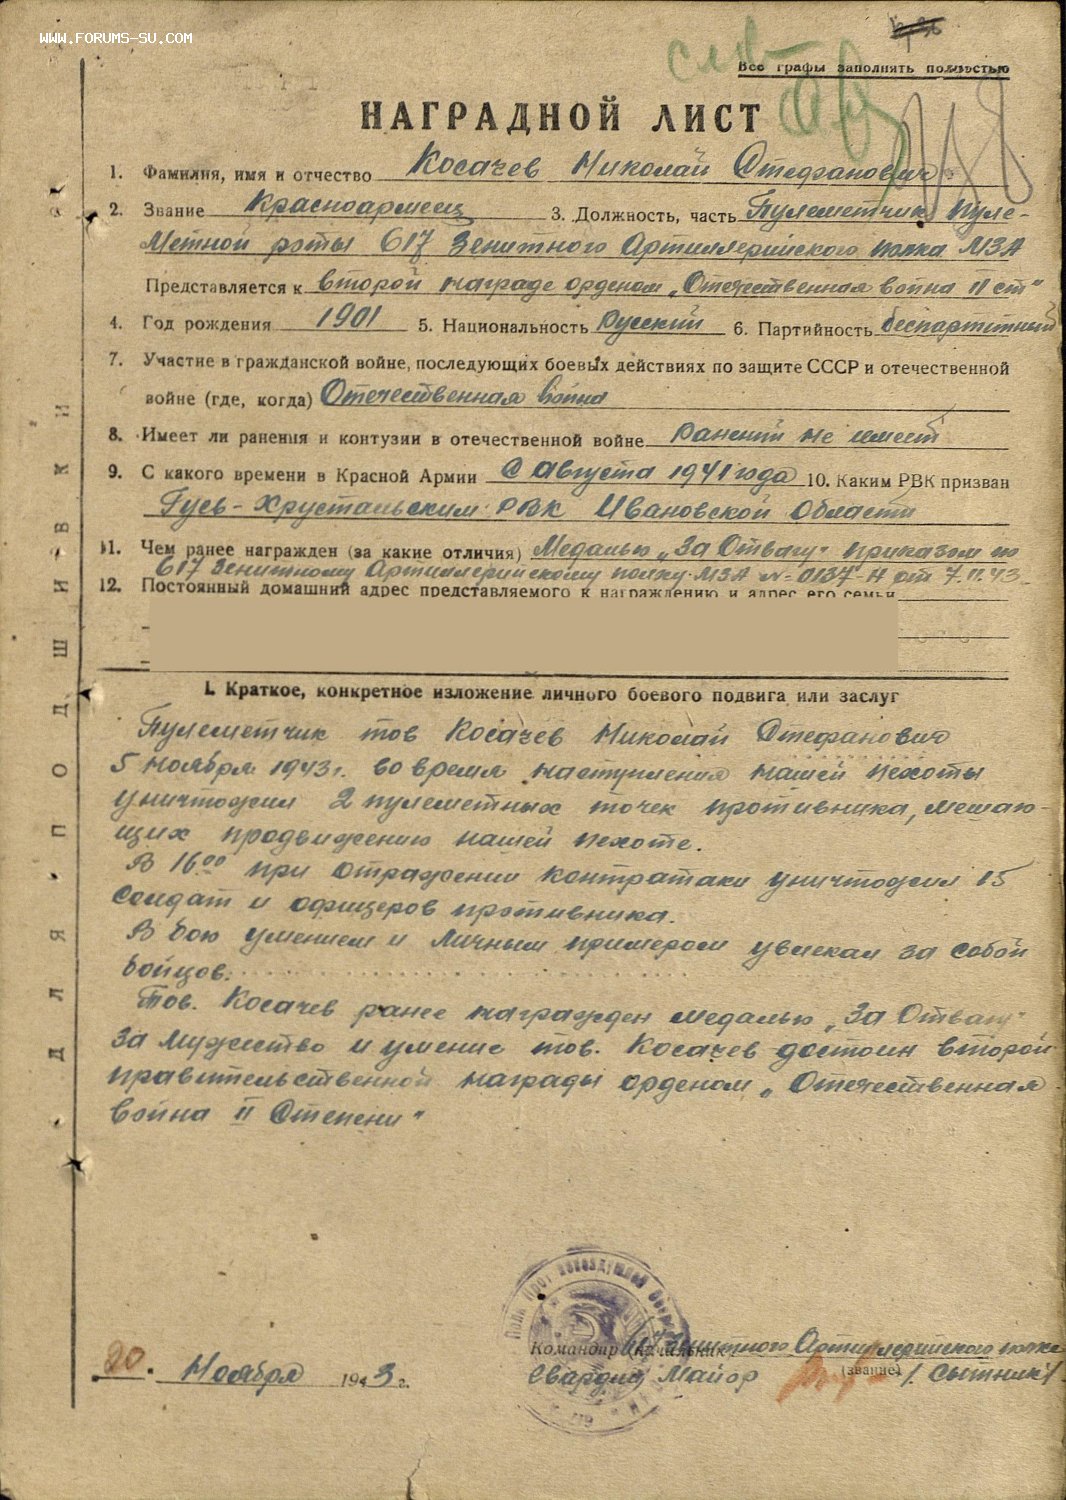 WWW.FORUMS-SU.COM
Все графы заполнять полностью
НАГРАДНОЙ ЛИСТ
1. Фамилия, имя и отчество Косачев Николай Стефанович
2. Звание Красноармеец 3. Должность, часть Пулеметчик пуле-
метной роты 617 Зенитного Артиллерийского полка МЗА
Представляется к второй награде орденом „Отечественная война II ст"
4. Год рождения 1901 5. Национальность Русский 6. Партийность беспартийный
7. Участие в гражданской войне, последующих боевых действиях по защите СССР и отечественной
войне (где, когда) Отечественная война
8. Имеет ли ранения и контузии в отечественной войне ранений не имеет
9. С какого времени в Красной Армии С августа 1941 года 10. Каким РВК призван
Гусь-Хрустальским РВК Ивановской области
11. Чем ранее награжден (за какие отличия) Медалью „За Отвагу" приказом по
617 Зенитному Артиллерийскому полку МЗА №-0137-Н от 7.11.43
12. Постоянный домашний адрес представляемого к награждению и адрес его семьи
I. Краткое, конкретное изложение личного боевого подвига или заслуг
Пулеметчик тов Косачев Николай Стефанович
5 ноября 1943 г. во время наступления нашей пехоты
уничтожил 2 пулеметных точек противника, мешаю-
щих продвижению нашей пехоте.
В 16 00 при отражении контратаки уничтожил 15
солдат и офицеров противника.
В бою умением и личным примером увлекал за собой
бойцов.
Тов. Косачев ранее награжден медалью „За Отвагу"
За мужество и умение тов. Косачев достоин второй
правительственной награды орденом „Отечественная
война II Степени"
Командир (начальник) Зенитного Артиллерийского полка
20. Ноября 1943 г. Гвардии Майор (звание) /. Сытник /
ДЛЯ ПОДШИВКИ